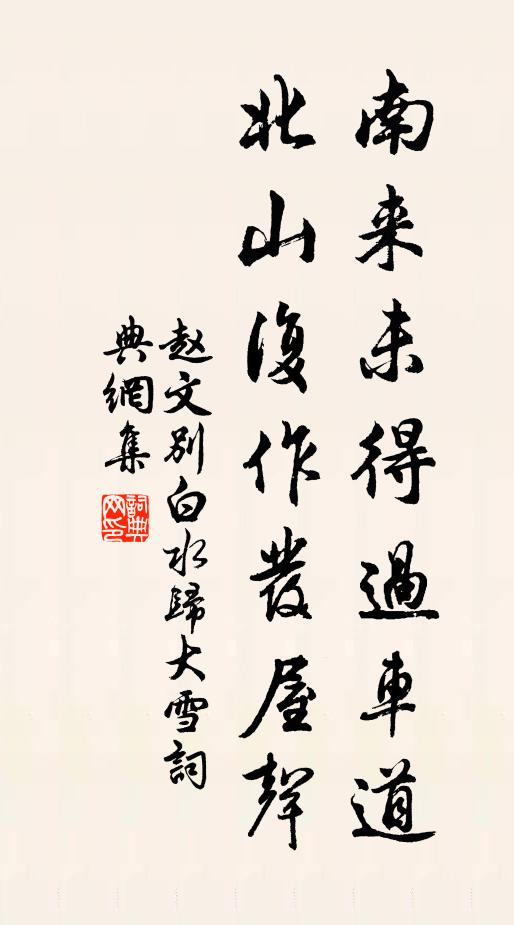 南来未得過車道
北山復作發屋聲
赵文別白水歸大雪詞
典網集
詞典网印